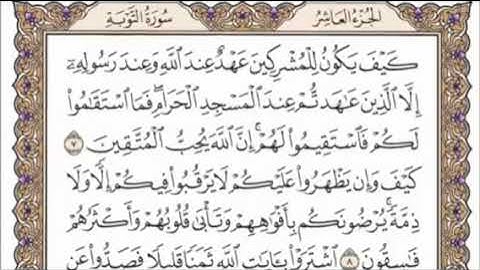 سُورَةُ التَّوۡبَةِ الجُزۡءُ العَاشِرُ
كَيۡفَ يَكُونُ لِلۡمُشۡرِكِينَ عَهۡدٌ عِندَ ٱللَّهِ وَعِندَ رَسُولِهِۦٓ
إِلَّا ٱلَّذِينَ عَٰهَدتُّمۡ عِندَ ٱلۡمَسۡجِدِ ٱلۡحَرَامِۖ فَمَا ٱسۡتَقَٰمُواْ
لَكُمۡ فَٱسۡتَقِيمُواْ لَهُمۡۚ إِنَّ ٱللَّهَ يُحِبُّ ٱلۡمُتَّقِينَ ٧
كَيۡفَ وَإِن يَظۡهَرُواْ عَلَيۡكُمۡ لَا يَرۡقُبُواْ فِيكُمۡ إِلّٗا وَلَا
ذِمَّةٗۚ يُرۡضُونَكُم بِأَفۡوَٰهِهِمۡ وَتَأۡبَىٰ قُلُوبُهُمۡ وَأَكۡثَرُهُمۡ
فَٰسِقُونَ ٨ ٱشۡتَرَوۡاْ بِـَٔايَٰتِ ٱللَّهِ ثَمَنٗا قَلِيلٗا فَصَدُّواْ عَن